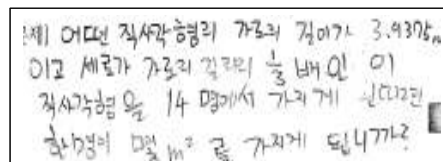 문제) 어떤 직사각형의 가로의 길이가 3.9375m
이고 세로가 가로의 길이의 1/3 배인 이
직사각형을 14 명에서 가지게 된다면
한명이 몇 m² 를 가지게 됩니까?